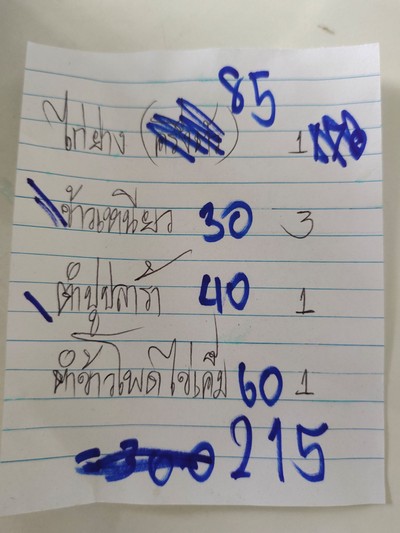 ไก่ย่าง ( ) 85 1
ข้าวเหนียว 30 3
ตำปูปลาร้า 40 1
ตำข้าวโพดไข่เค็ม 60 1
215